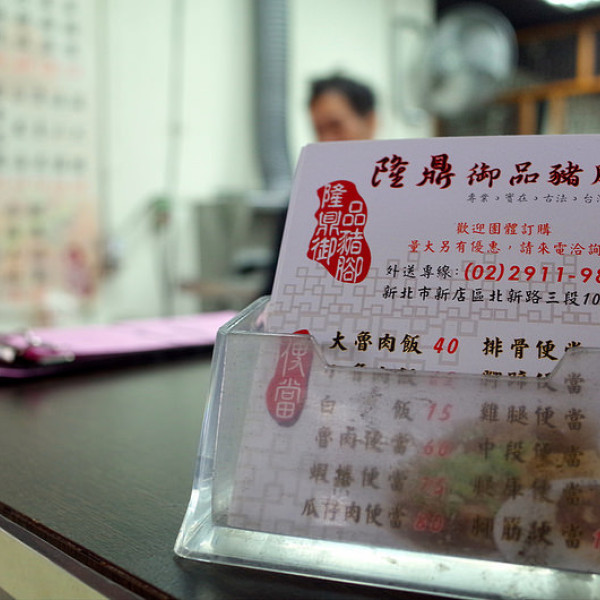 隆鼎御品豬
專業。實在。古法。台
隆鼎御品豬腳
歡迎團體訂購
量大另有優惠,請來電洽詢
外送專線:(02)2911-9
新北市新店區北新路三段10
大魯肉飯 40 排骨便當
便當
白 飯 15 雞腿便當
魯肉便當 60 中段便當
蝦捲便當 75
瓜仔肉便當 60 腳筋便當